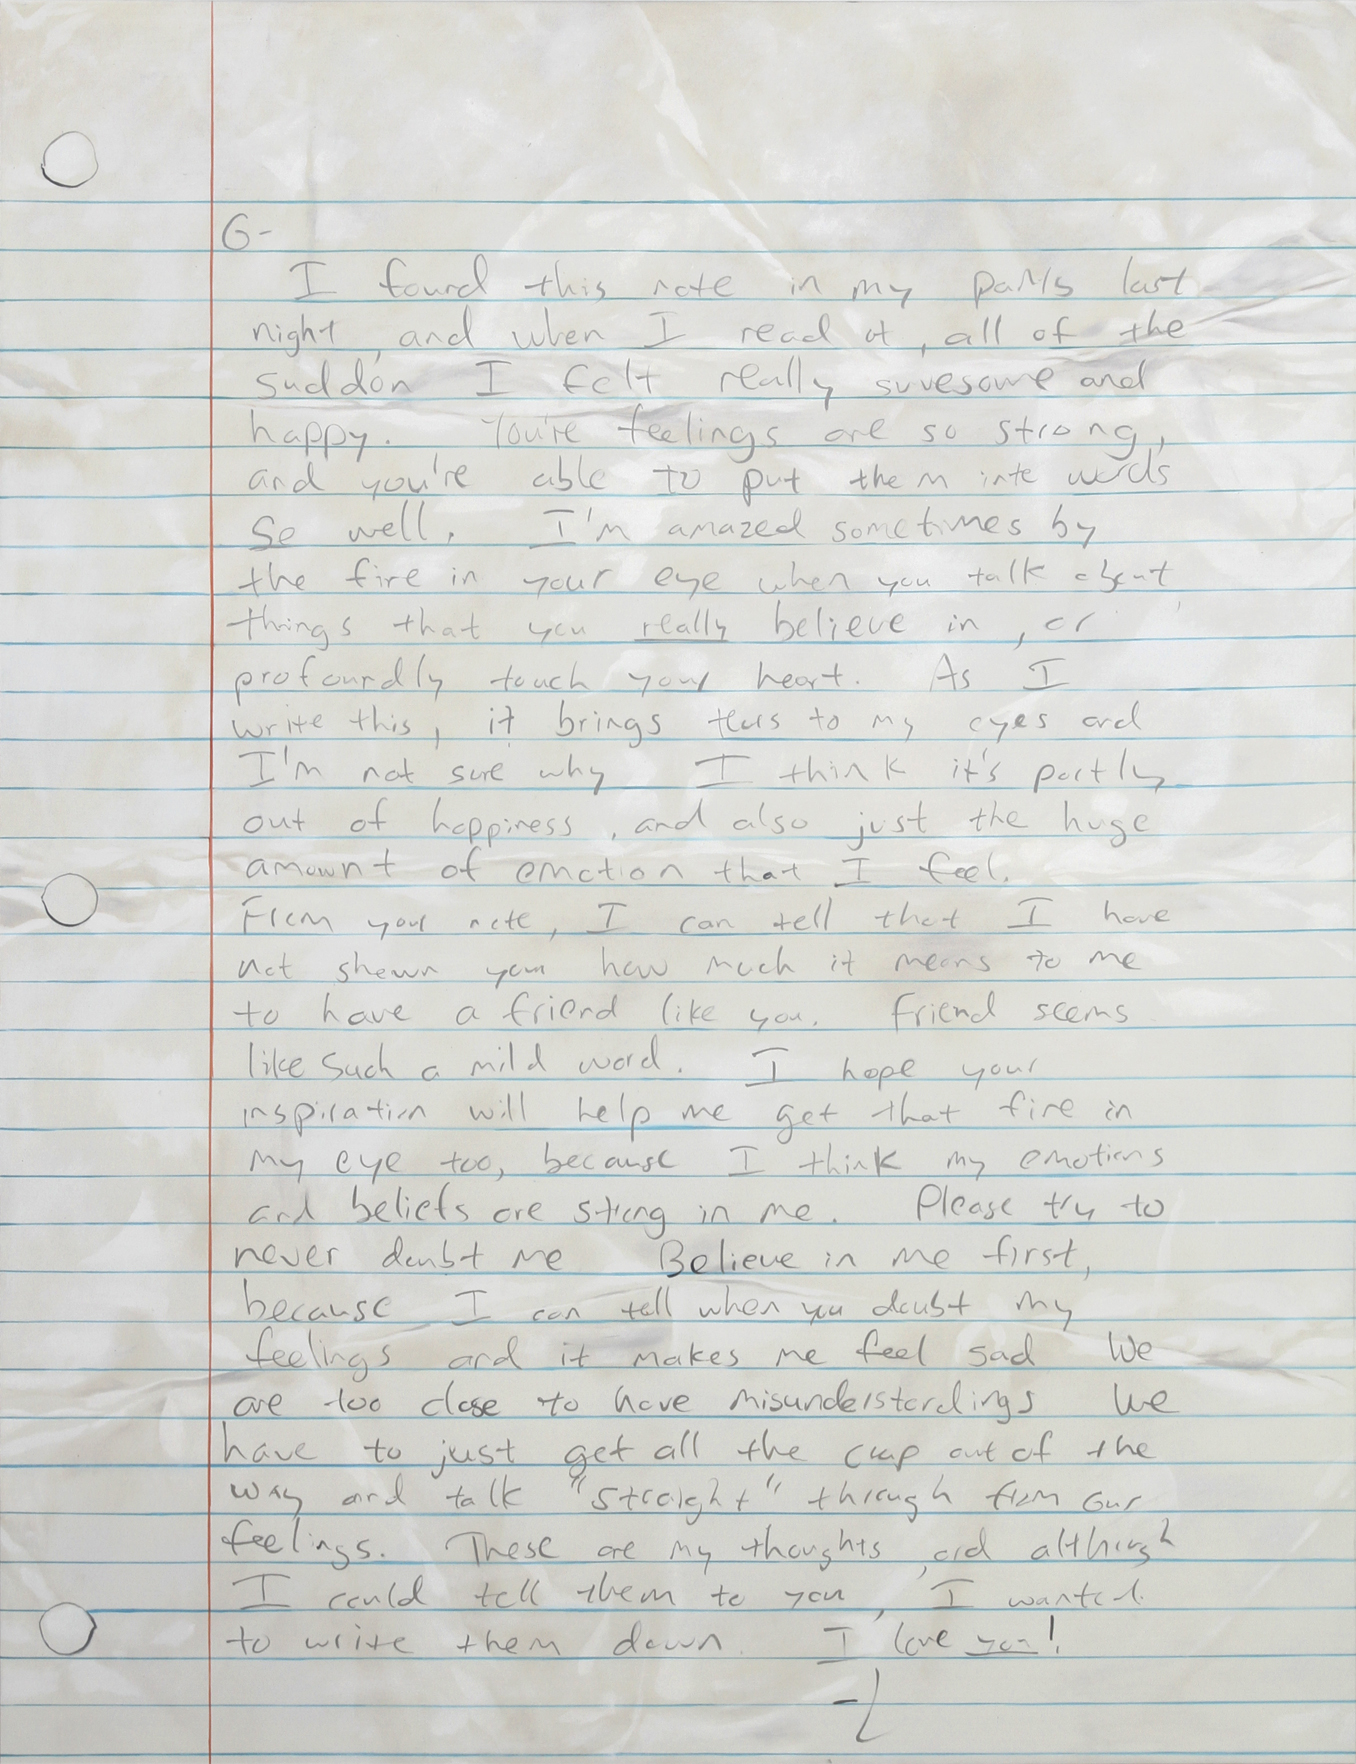 G-
I found this note in my pants last
night, and when I read it, all of the
sudden I felt really awesome and
happy. You're feelings are so strong,
and you're able to put them into words
so well. I'm amazed sometimes by
the fire in your eye when you talk about
things that you really believe in, or
profoundly touch your heart. As I
write this, it brings tears to my eyes and
I'm not sure why I think it's partly
out of happiness, and also just the huge
amount of emotion that I feel.
From your note, I can tell that I have
not shown you how much it means to me
to have a friend like you. Friend seems
like such a mild word. I hope your
inspiration will help me get that fire in
my eye too, because I think my emotions
and beliefs are strong in me. Please try to
never doubt me Believe in me first,
because I can tell when you doubt my
feelings and it makes me feel sad We
are too close to have misunderstandings We
have to just get all the crap out of the
way and talk "straight" through from our
feelings. These are my thoughts, and although
I could tell them to you, I wanted
to write them down. I love you!
-L